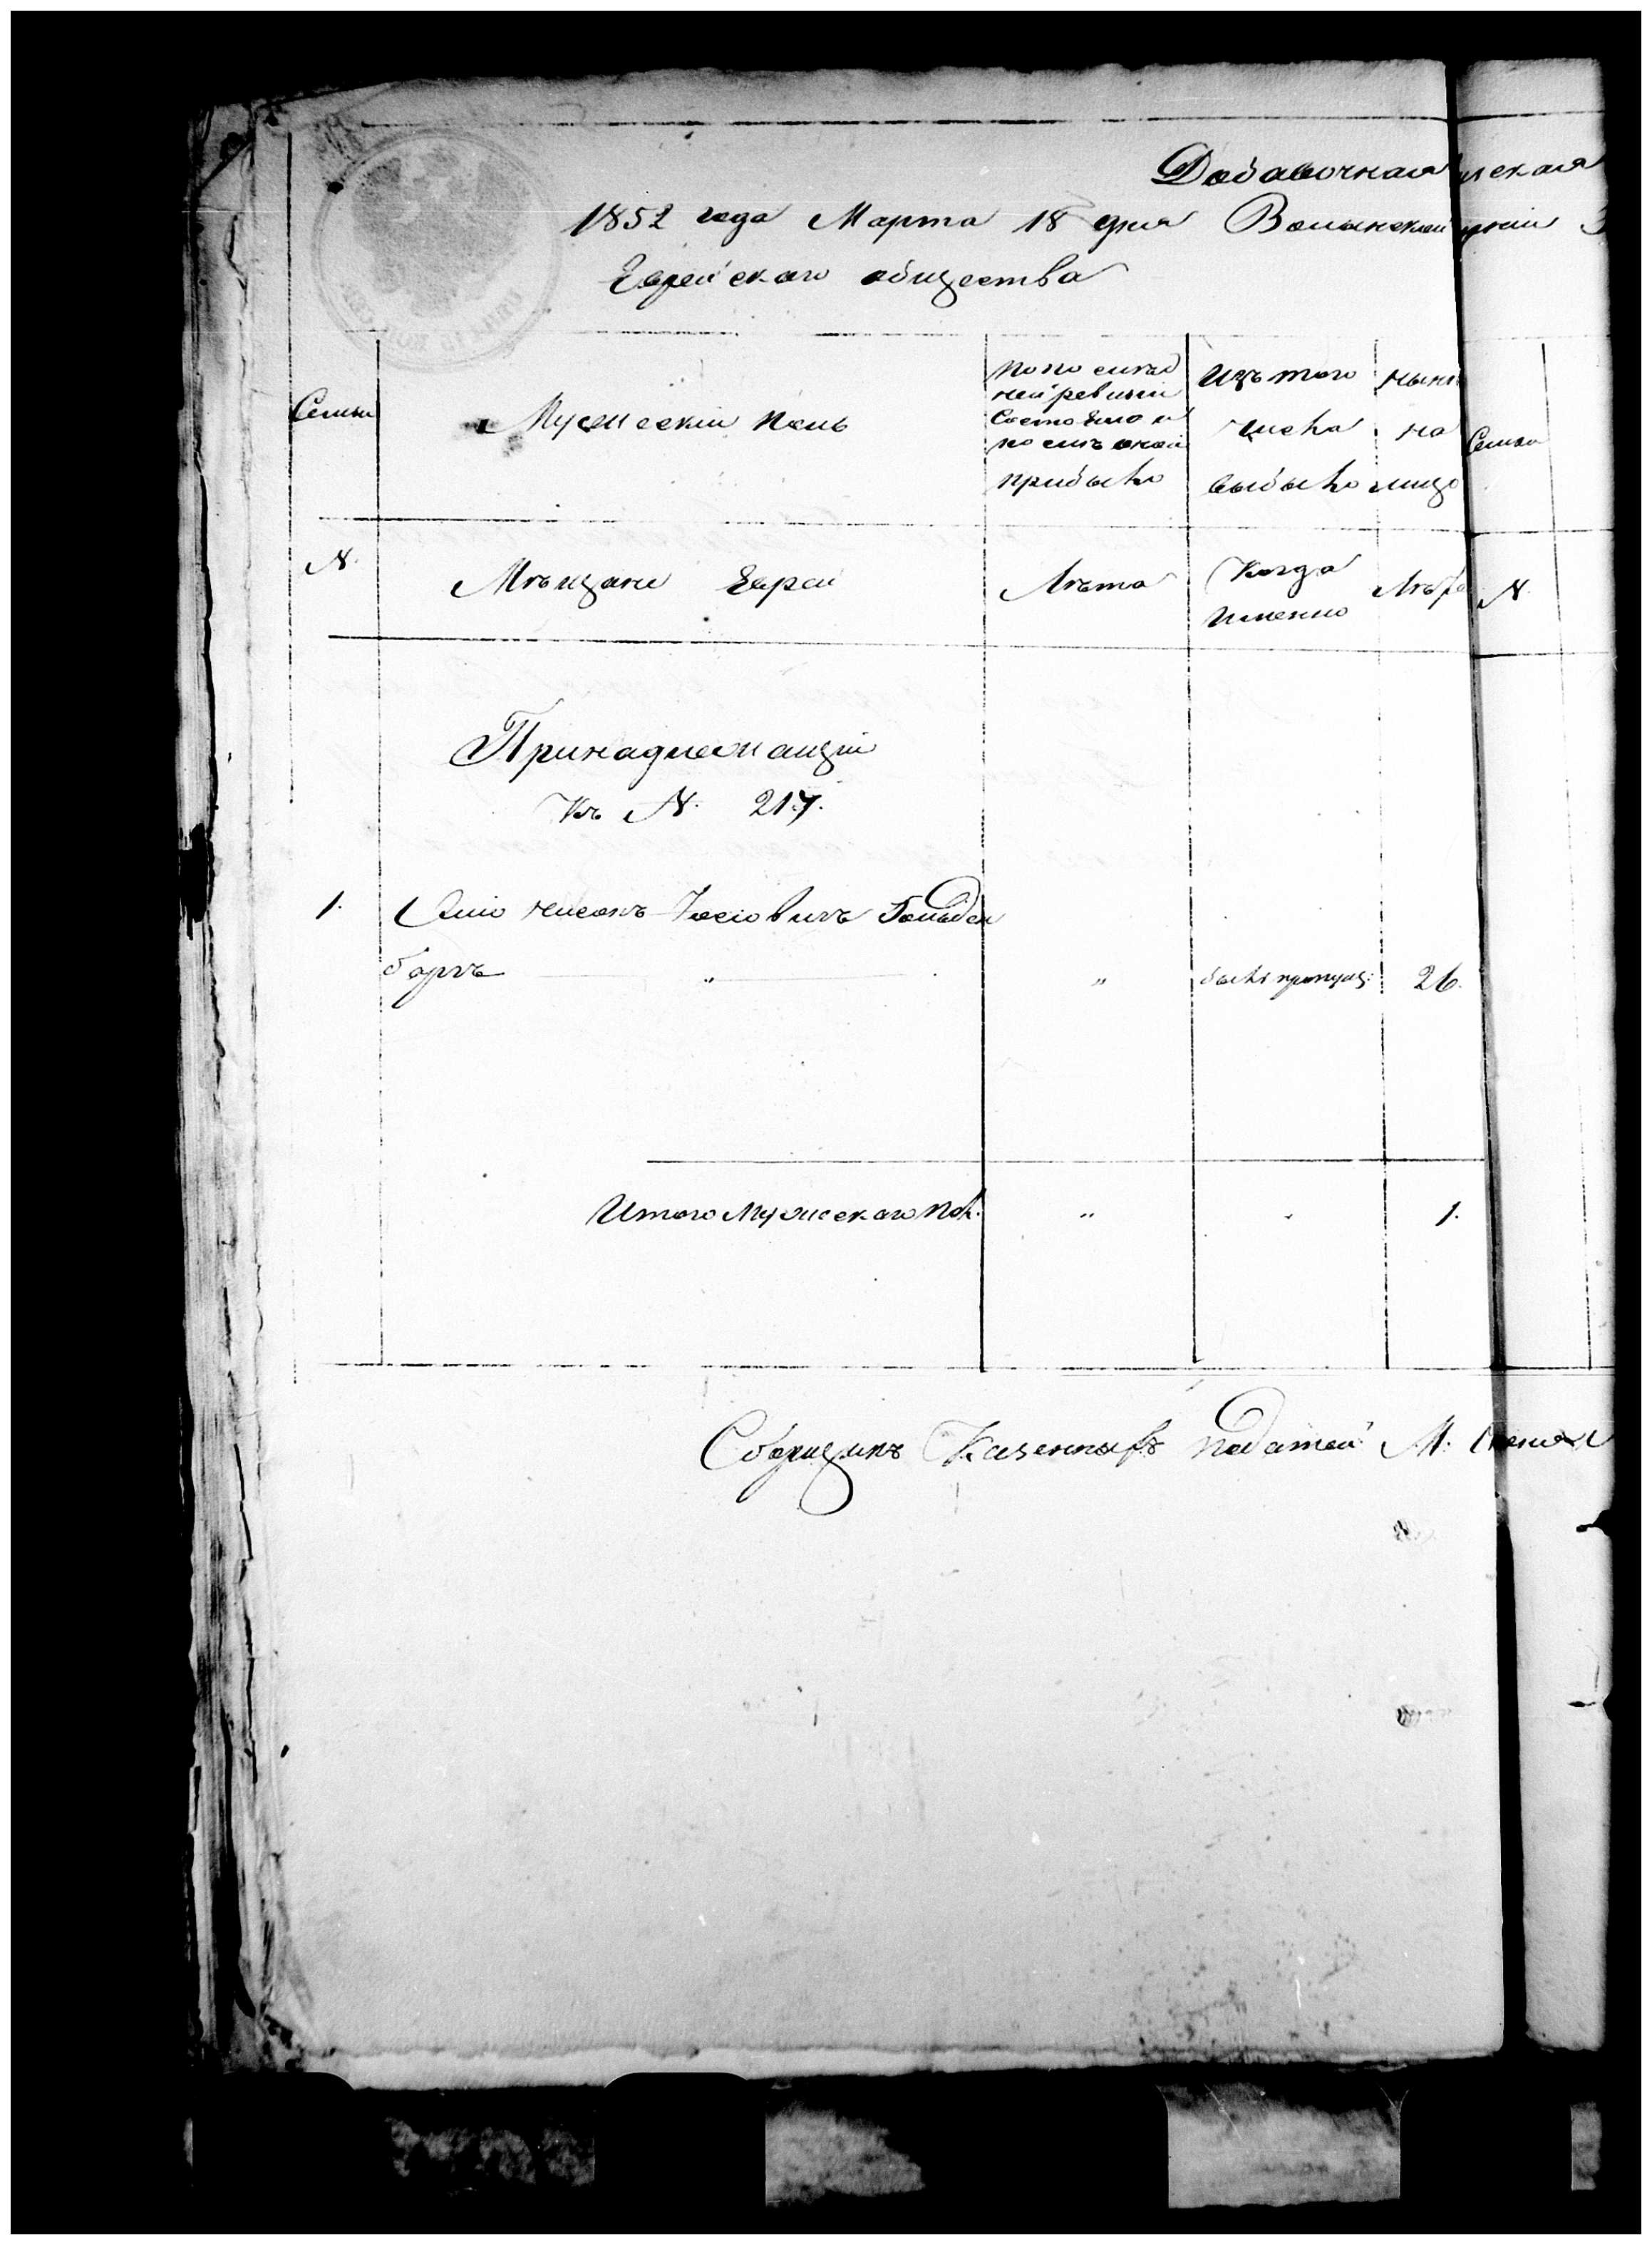 Добавочная
1852 года Марта 18 дня Волынской
Еврейскаго общества
Семьи
Мужескій полъ
По послѣд
ней ревизіи
состояло и
послѣ оной
прибыло
Изъ того
числа
выбыло
нынѣ
на
лицо
Семьи
N.
Мѣщане Евреи
Лѣта
Когда
именно
Лѣта
N.
Принадлежащій
Къ N. 217.
1. Нисонъ Іосіовичъ Гольден
бергъ " " былъ пропущ: 26.
Итого Мужескаго пол. " " 1.
Сборщикъ Казенныхъ податей М.